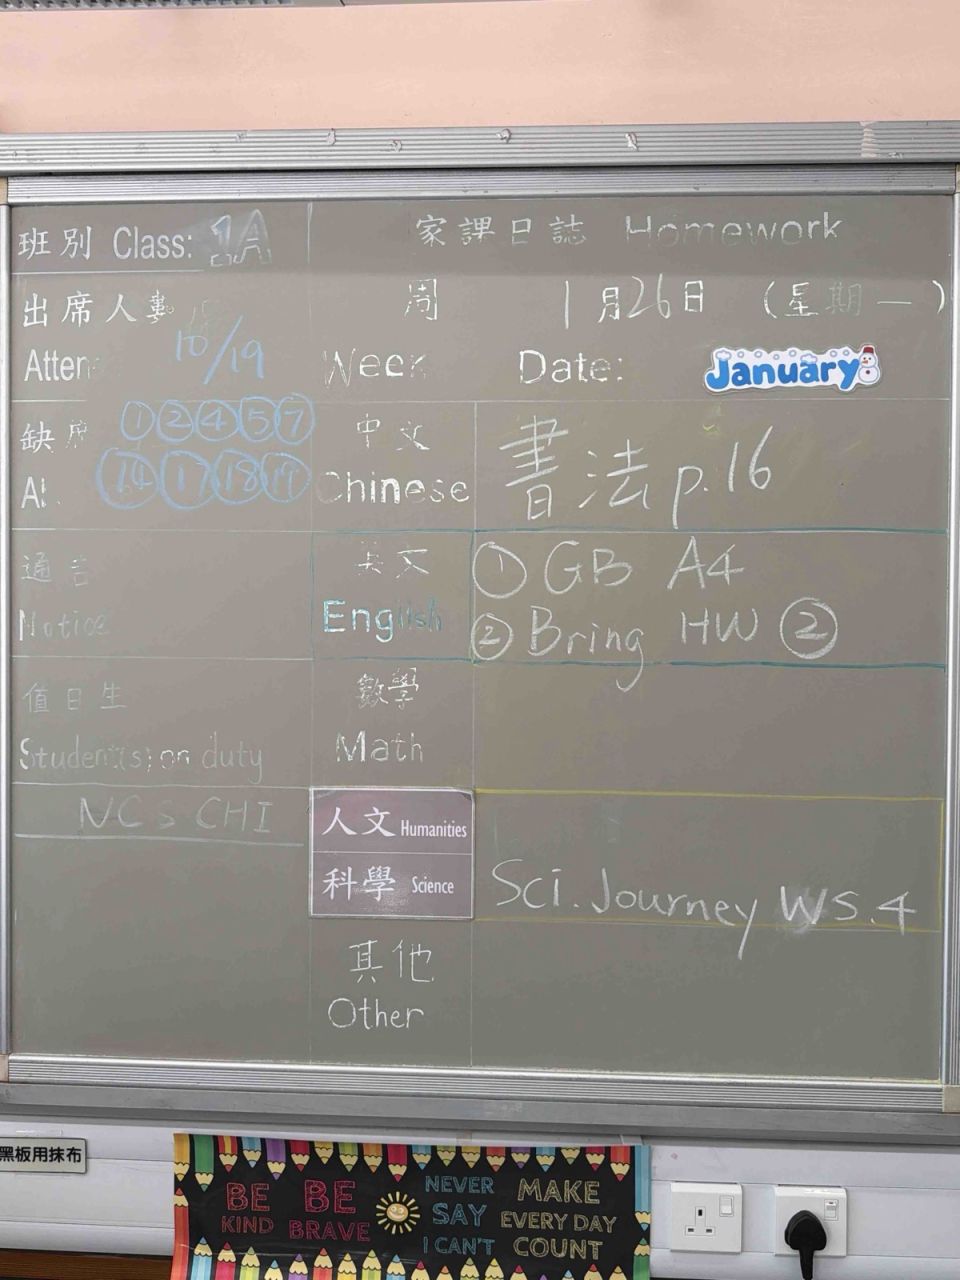 班別 Class: 1A
家課日誌 Homework
出席人數
Atten
10/19
周
Week
1月26日 (星期一)
Date: January
缺席
Ab
① ② ④ ⑤ ⑦
⑭ ⑰ ⑱ ⑲
中文
Chinese
書法 p.16
通告
Notice
英文
English
① GB A4
② Bring HW ②
值日生
Student(s) on duty
數學
Math
NCS CHI
人文 Humanities
科學 Science
Sci. Journey WS.4
其他
Other
黑板用抹布
BE KIND
BE BRAVE
NEVER SAY I CAN'T
MAKE EVERY DAY COUNT